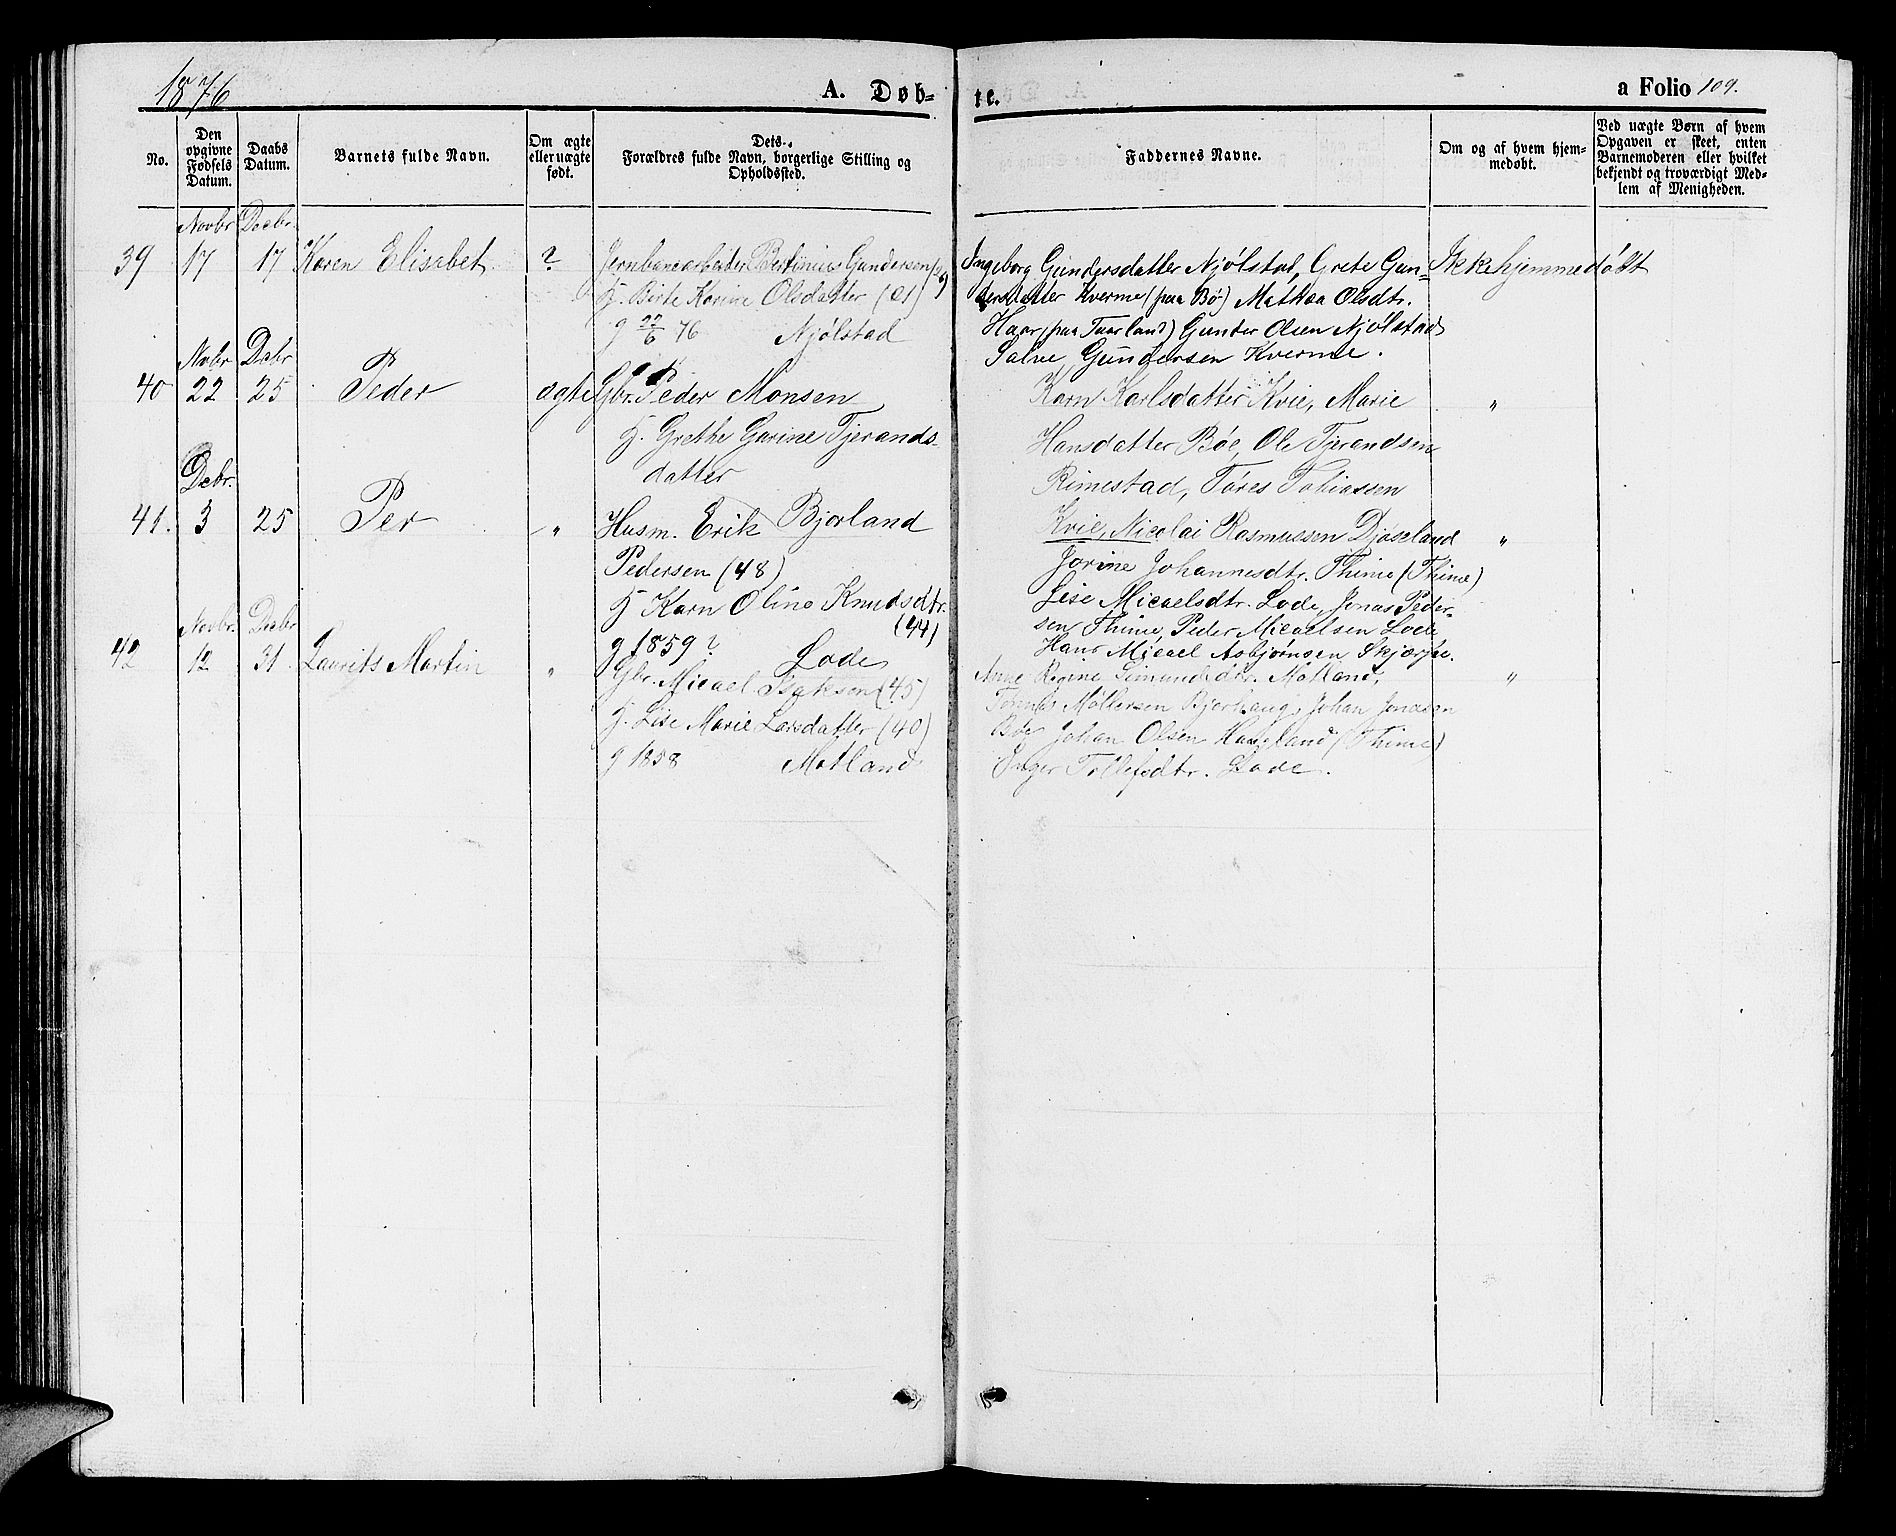 1876
A. Døb-
te.
a Folio 109.
No.
Den opgivne Fødsels Datum.
Daabs Datum.
Barnets fulde Navn.
Om ægte eller uægte født.
Dets Forældres fulde Navn, borgerlige Stilling og Opholdssted.
Faddernes Navne.
Om og af hvem hjemmedøbt.
Ved uægte Børn af hvem Opgaven er skeet, enten Barnemoderen eller hvilket bekjendt og troværdigt Medlem af Menigheden.
Novbr Decbr
39 17 17 Karen Elisabet ? Jernbanearbeider Bertinius Gundersen
H. Birte Karine Olsdatter (21)
g 22/6 76 Njølstad
Ingeborg Gundersdatter Njølstad, Grete Gun-
dersdatter Kverme (paa Bø) Mathea Olsdtr.
Haar, (paa Taarland) Gunder Olsen Njølstad
Salve Gundersen Kverme.
Ikke hjemmedøbt
Novbr Debr
40 22 25 Peder ægte Gbr. Peder Monsen
H. Grethe Gurine Tjerands-
datter
Bjorland
Karn Karlsdatter Kvie, Marie
Hansdatter Bøe, Ole Tjerandsen
Rimestad, Tøres Tobiassen
Kvie, Nicolai Rasmussen Djøseland
"
Debr.
41. 3 25 Per " Husm. Erik
Pedersen (48)
H Karn Oline Knudsdtr.
(44)
g 1859? Lode
Jorine Johannesdtr. Thime (Thime)
Lise Micaelsdtr. Lode, Jonas Peder-
sen Thime, Peder Micaelsen Lode
Hans Micael Asbjørnsen Skjærpe.
"
Novbr. Decbr
42 12 31 Laurits Martin " Gbr. Micael Isaksen (45)
H. Lise Marie Larsdatter (40)
g 1858 Motland
Anne Regine Simundsdtr. Motland,
Tønnes Møllersen Bjerhaug, Johan Jonasen
Bøe Johan Olsen Haugland (Thime)
Inger Tollefsdtr. Lode.
"